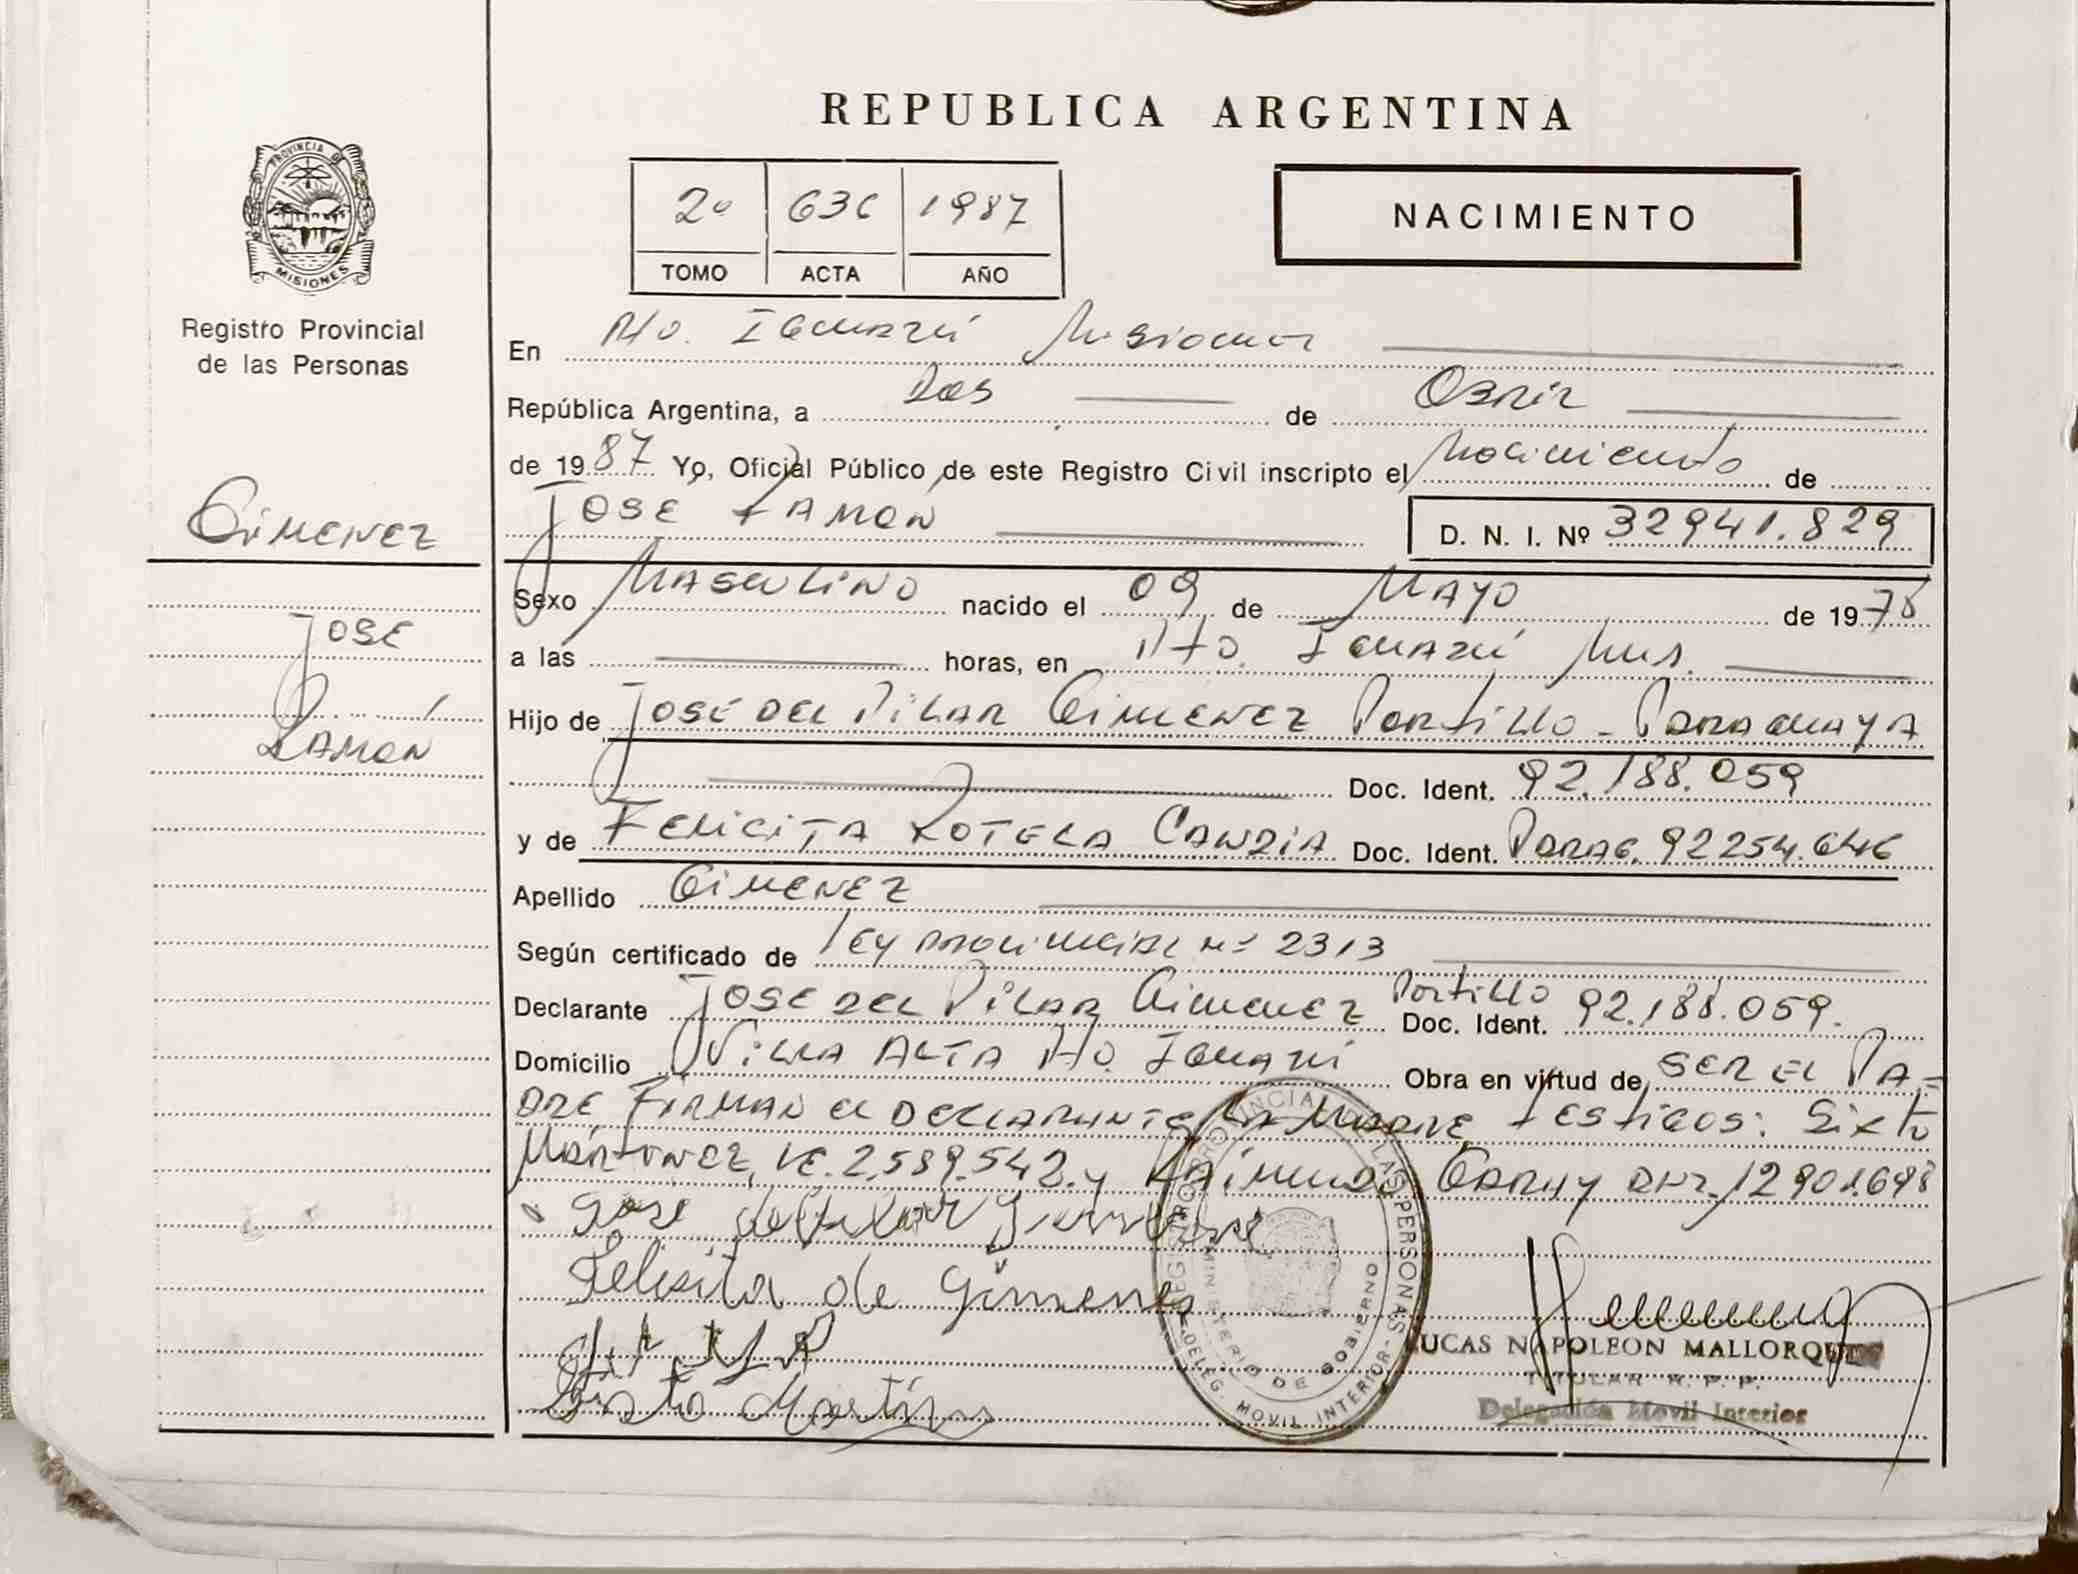 REPUBLICA ARGENTINA
PROVINCIA DE
MISIONES
Registro Provincial
de las Personas
2º 636 1987
TOMO ACTA AÑO
NACIMIENTO
En Pto. Iguazú Misiones
República Argentina, a Dos de Abril
de 1987 Yo, Oficial Público de este Registro Civil inscripto el Nacimiento de
GIMENEZ
JOSE RAMON D. N. I. Nº 32941.829
Sexo MASCULINO nacido el 09 de MAYO de 1978
JOSE
RAMÓN
a las horas, en Pto. IGUAZÚ Mns.
Hijo de JOSE DEL PILAR GIMENEZ PORTILLO - PARAGUAYA
Doc. Ident. 92.188.059
y de FELICITA ROTELA CANDIA Doc. Ident. PARAG. 92254.646
Apellido GIMENEZ
Según certificado de LEY PROVINCIAL Nº 2313
Declarante JOSE DEL PILAR GIMENEZ PORTILLO Doc. Ident. 92.188.059.
Domicilio VILLA ALTA Pto. IGUAZÚ Obra en virtud de SER EL PA-
DRE FIRMAN EL DECLARANTE LA MADRE TESTIGOS: SIXTO
MARTINEZ, LE. 2.589.542. y RAIMUNDO DNI. 12901.698
José del Pilar Gimenez
Felisita de Gimenes
Sixto Martines
REGISTRO PROVINCIAL DE LAS PERSONAS
MINISTERIO DE GOBIERNO
DELEG. MOVIL INTERIOR
LUCAS NAPOLEON MALLORQUIN
TITULAR R. P. P.
Delegación Movil Interior